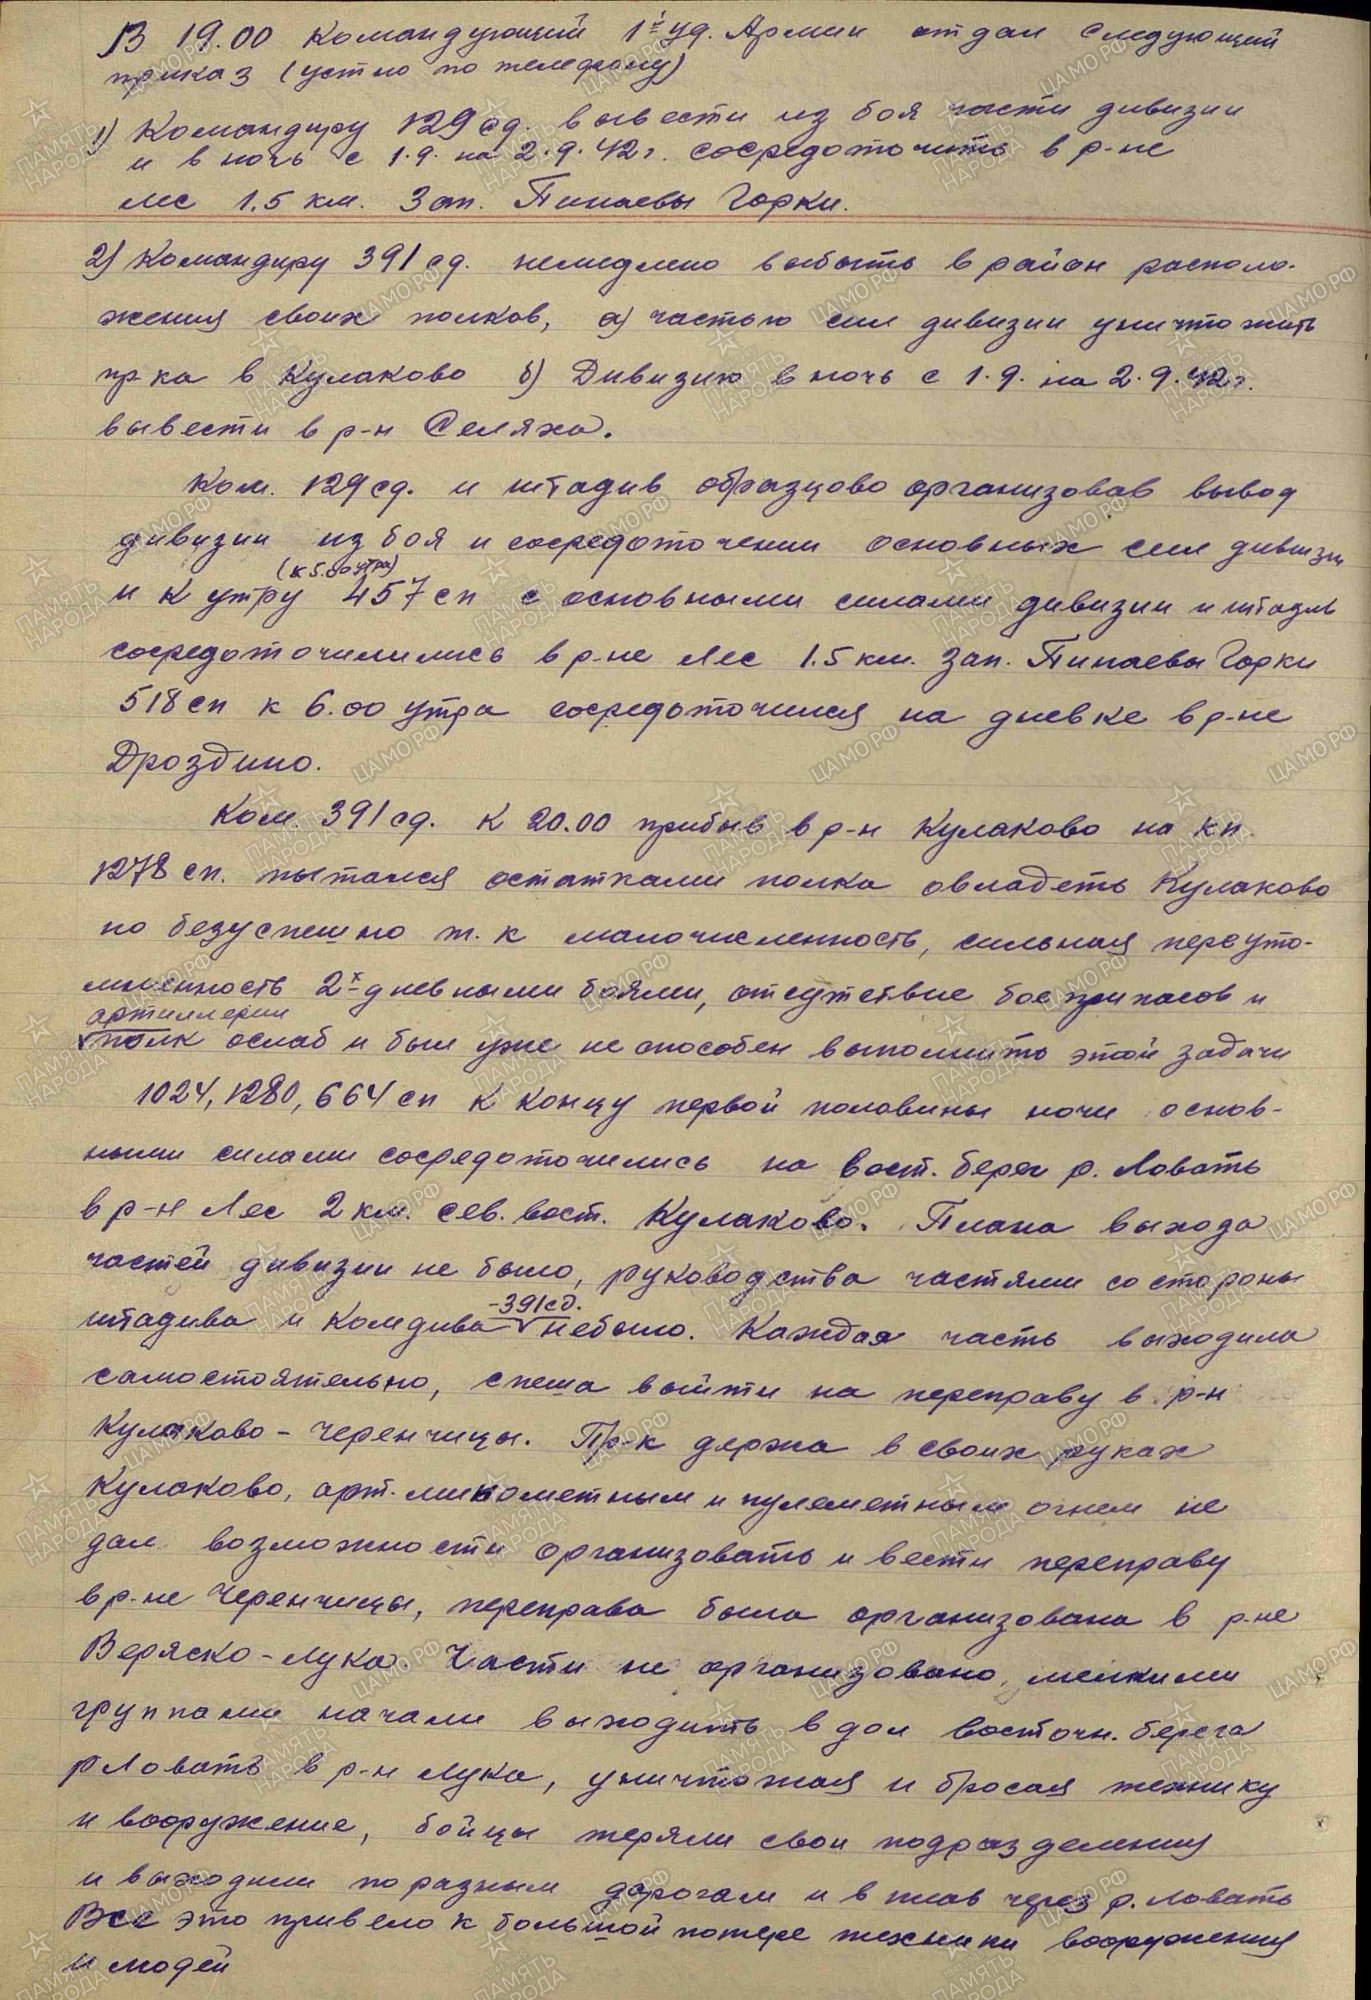 В 19.00 командующий 1й уд. Армии отдал следующий
приказ (устно по телефону)
1) Командиру 129 сд. вывести из боя части дивизии
и в ночь с 1.9. на 2.9.42 г. сосредоточить в р-не
лес 1.5 км. Зап. Пинаевы Горки.
2) Командиру 391 сд. немедлено выбыть в район располо-
жения своих полков, а) частью сил дивизии уничтожить
пр-ка в Кулаково б) Дивизию в ночь с 1.9. на 2.9.42 г.
вывести в р-н Селяха.
Ком. 129 сд. и штадив образцово организовав вывод
дивизии из боя и сосредоточении основных сил дивизии
(к 5.00 утра)
и к утру 457 сп с основными силами дивизии и штадив
сосредоточилились в р-не Лес 1.5 км. Зап. Пинаевы Горки
518 сп к 6.00 утра сосредоточился на дневке в р-не
Дроздино.
Ком. 391 сд. к 20.00 прибыв в р-н Кулаково на кп.
1278 сп. пытался остатками полка овладеть Кулаково
но безуспешно т.к малочисленность, сильная переуто-
мленность 2х-дневными боями, отсутствие боеприпасов и
артиллерии
полк ослаб и был уже не способен выполнить этой задачи
1024, 1280, 664 сп к концу первой половины ночи основ-
ными силами сосредоточились на вост. берег р. Ловать
в р-н Лес 2 км. сев. вост. Кулаково. Плана выхода
частей дивизии не было, руководства частями со стороны
-391 сд.
штадива и комдива небыло. Каждая часть выходила
самостоятельно, спеша выйти на переправу в р-н
Кулаково - Черенчицы. Пр-к держа в своих руках
Кулаково, арт. минометным и пулеметным огнем не
дал возможности организовать и вести переправу
в р-не Черенчицы, переправа была организована в р-не
Веряско-Лука. Части не организовано, мелкими
группами начали выходить вдол восточн. берега
р Ловать в р-н Лука, уничтожая и бросая технику
и вооружение, бойцы теряли свои подразделения
и выходили по разным дорогам и в плав через р. Ловать
Все это привело к большой потере техники вооружения
и людей